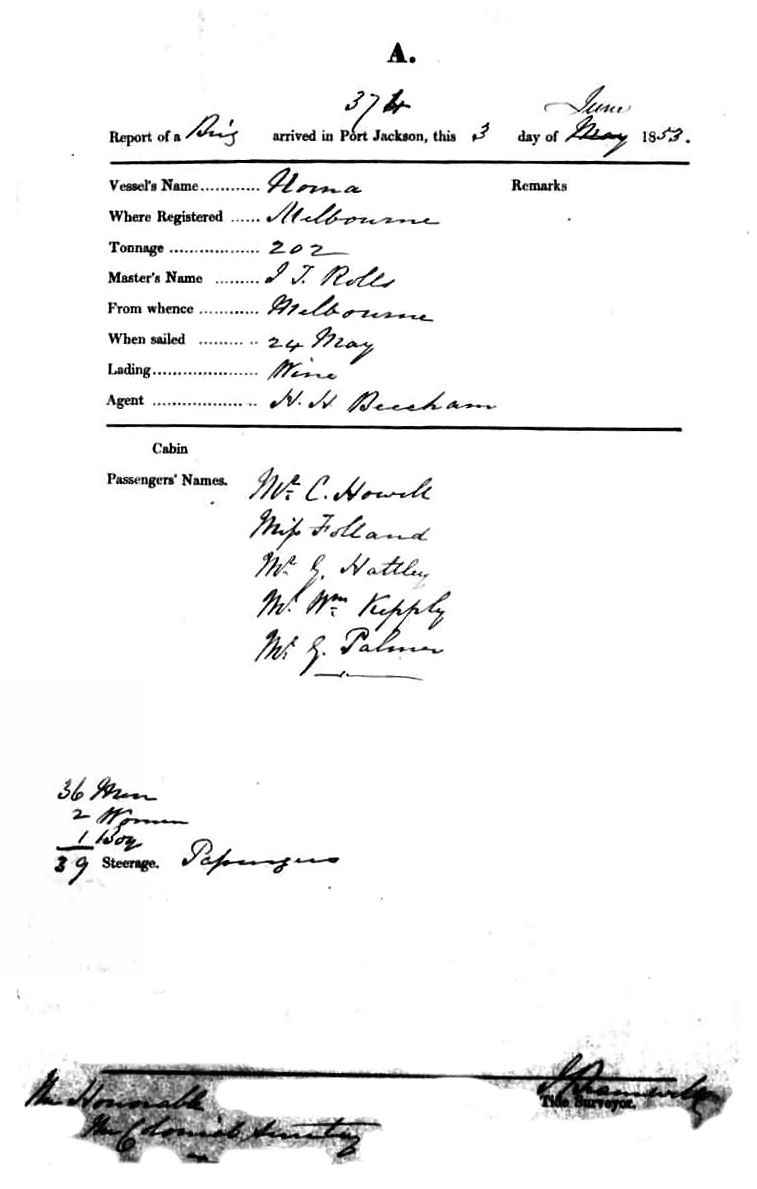 A.
37
June
Report of a Brig arrived in Port Jackson, this 3 day of May 1853.
Vessel's Name............ Noma Remarks
Where Registered ...... Melbourne
Tonnage .................. 202
Master's Name ......... J T. Rolls
From whence ............ Melbourne
When sailed ......... .. 24 May
Lading..................... Wine
Agent .................. .. H. H Beecham
Cabin
Passengers' Names. Mr. C. Howell
Miss Folland
Mr. G. Hattley
Mr. Wm. Kepply
Mr. G. Palmer
36 Men
2 Women
1 Boy
39 Steerage. Passengers
The Honorable
Tide Surveyor.
The Colonial Secretary